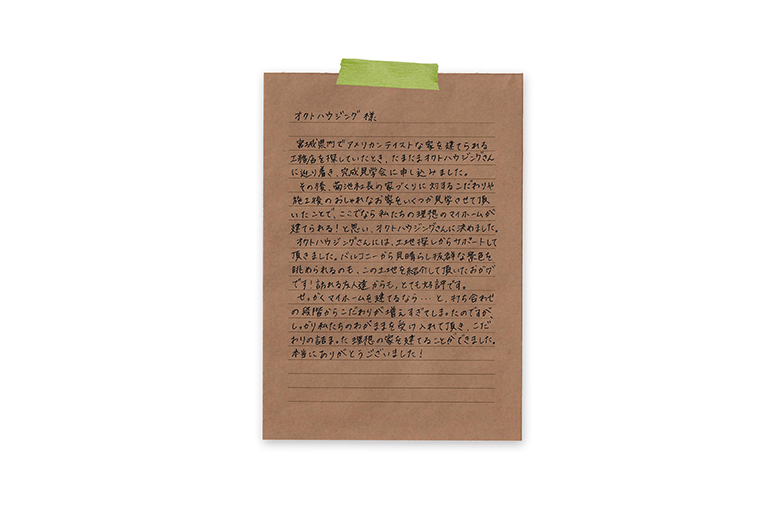 オクトハウジング 様
宮城県内でアメリカンテイストな家を建てられる
工務店を探していたとき、たまたまオクトハウジングさん
に辿り着き、完成見学会に申し込みました。
その後、菊池社長の家づくりに対するこだわりや
施工後のおしゃれなお家をいくつか見学させて頂
いたことで、ここでなら私たちの理想のマイホームが
建てられる!と思い、オクトハウジングさんに決めました。
オクトハウジングさんには、土地探しからサポートして
頂きました。バルコニーから見晴らし抜群な景色を
眺められるのも、この土地を紹介して頂いたおかげ
です!訪れる友人達からも、とても好評です。
せっかくマイホームを建てるなら…と、打ち合わせ
の段階からこだわりが増えすぎてしまったのですが、
しっかり私たちのわがままを受け入れて頂き、こだ
わりの詰まった理想の家を建てることができました。
本当にありがとうございました!